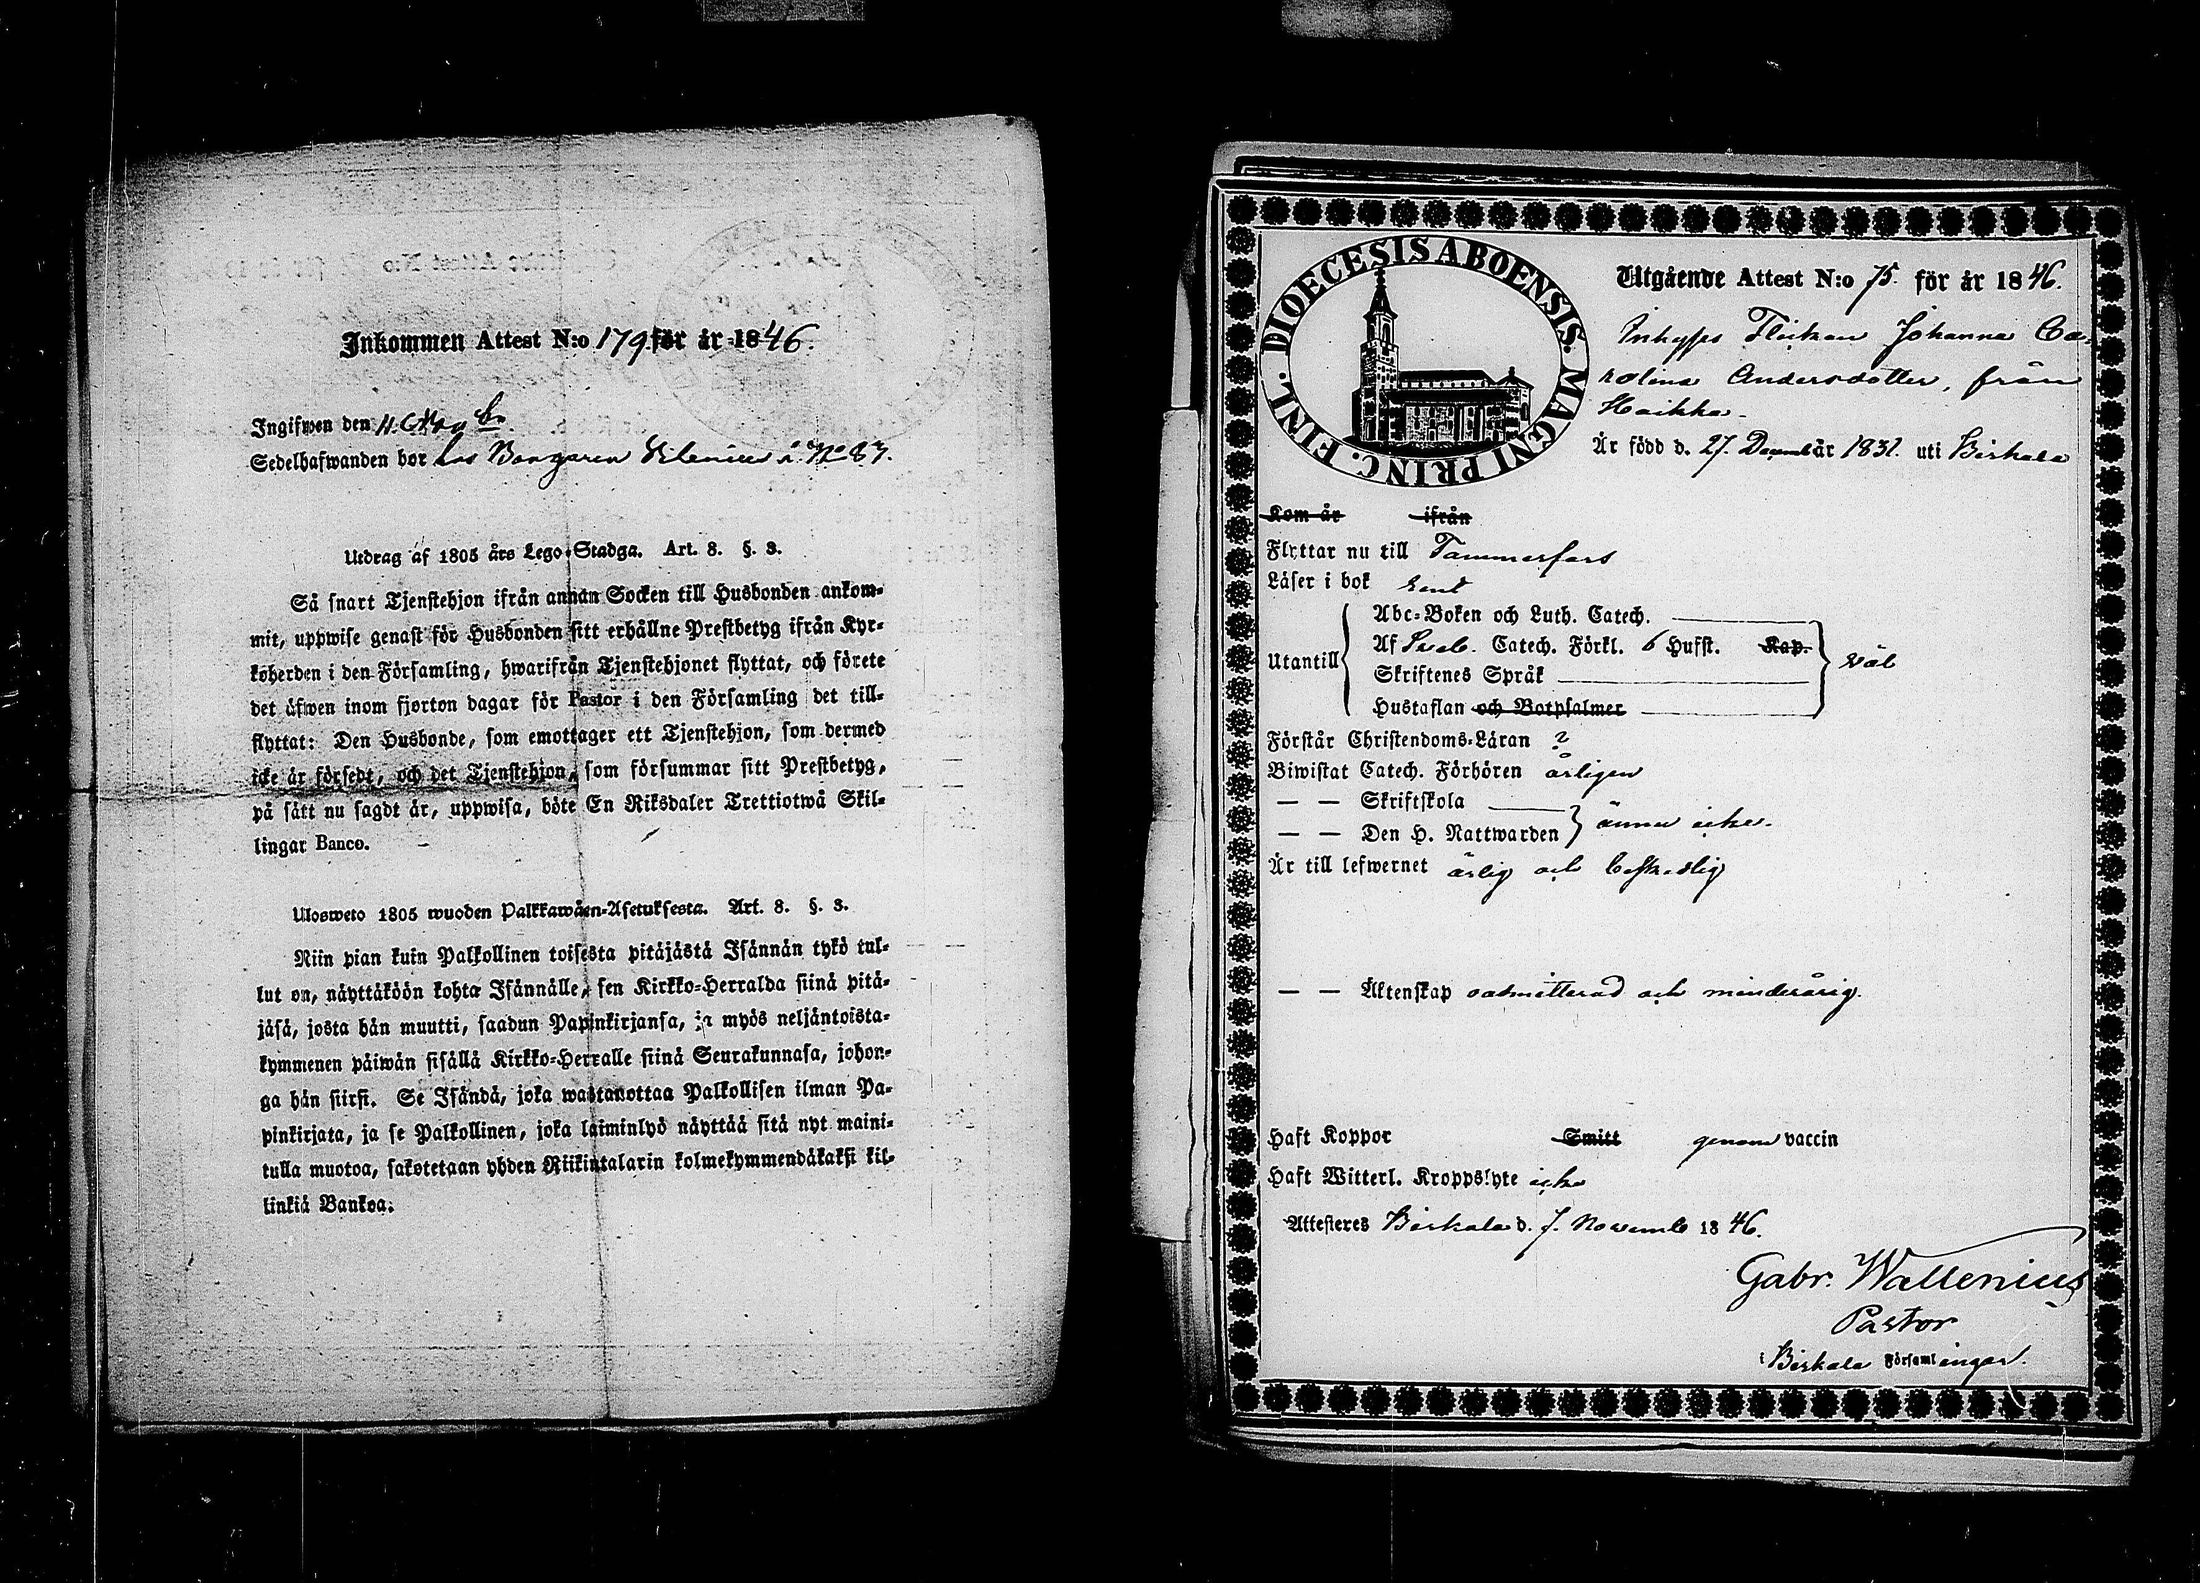 Inkommen Attest N:o 179 för år 1846.
Ingifwen den 11 Novbr.
Sedelhafwanden bor hos Borgaren å No 87.
Utdrag af 1805 års Lego-Stadga. Art. 8. §. 3.
Så snart Tjenstehjon ifrån annan Socken till Husbonden ankom-
mit, uppwise genast för Husbonden sitt erhållne Prestbetyg ifrån Kyr-
koherden i den Församling, hwarifrån Tjenstehjonet flyttat, och förete
det äfwen inom fjorton dagar för Pastor i den Församling det till-
flyttat: Den Husbonde, som emottager ett Tjenstehjon, som dermed
icke är försedt, och det Tjenstehjon, som försummar sitt Prestbetyg,
på sätt nu sagdt är, uppwisa, böte En Riksdaler Trettiotwå Skil-
lingar Banco.
Ulosweto 1805 wuoden Palkkawäen-Asetuksesta. Art. 8. §. 3.
Niin pian kuin Palkollinen toisesta pitäjästä Isännän tykö tul-
lut on, näyttäköön kohta Isännälle, sen Kirkko-Herralda siinä pitä-
jäsä, josta hän muutti, saadun Papinkirjansa, ja myös neljäntoista-
kymmenen päiwän sisällä Kirkko-Herralle siinä Seurakunnasa, johon-
ga hän siirsi. Se Isändä, joka wastanottaa Palkollisen ilman Pa-
pinkirjata, ja se Palkollinen, joka laiminlyö näyttää sitä nyt maini-
tulla muotoa, sakotetaan yhden Riikintalarin kolmekymmendäkaksi kil-
linkiä Bankoa.
DIOECESIS ABOENSIS. MAGNI PRINC. FINL.
Utgående Attest N:o 75. för år 1846.
Inhyses Flickan Johanna Ca-
rolina Andersdotter, från
Haikka.
Är född d. 27. Decemb är 1831. uti Birkala
Kom år ifrån
Flyttar nu till Tammerfors
Läser i bok rent
Abc-Boken och Luth. Catech.
Utantill Af Sveb. Catech. Förkl. 6 Hufst. Kap. väl
Skriftenes Språk
Hustaflan och Botpsalmer
Förstår Christendoms-Läran ?
Biwistat Catech. Förhören årligen
— — Skriftskola
— — Den H. Nattwarden ännu icke.
Är till lefwernet ärlig och beskedlig
— — Äktenskap oadmitterad och minderårig.
Haft Koppor Smitt genom vaccin
Haft Witterl. Kroppslyte icke
Attesteres Birkala d. 7. Novemb 1846.
Gabr. Wallenius
Pastor
i Birkala Församlingar.